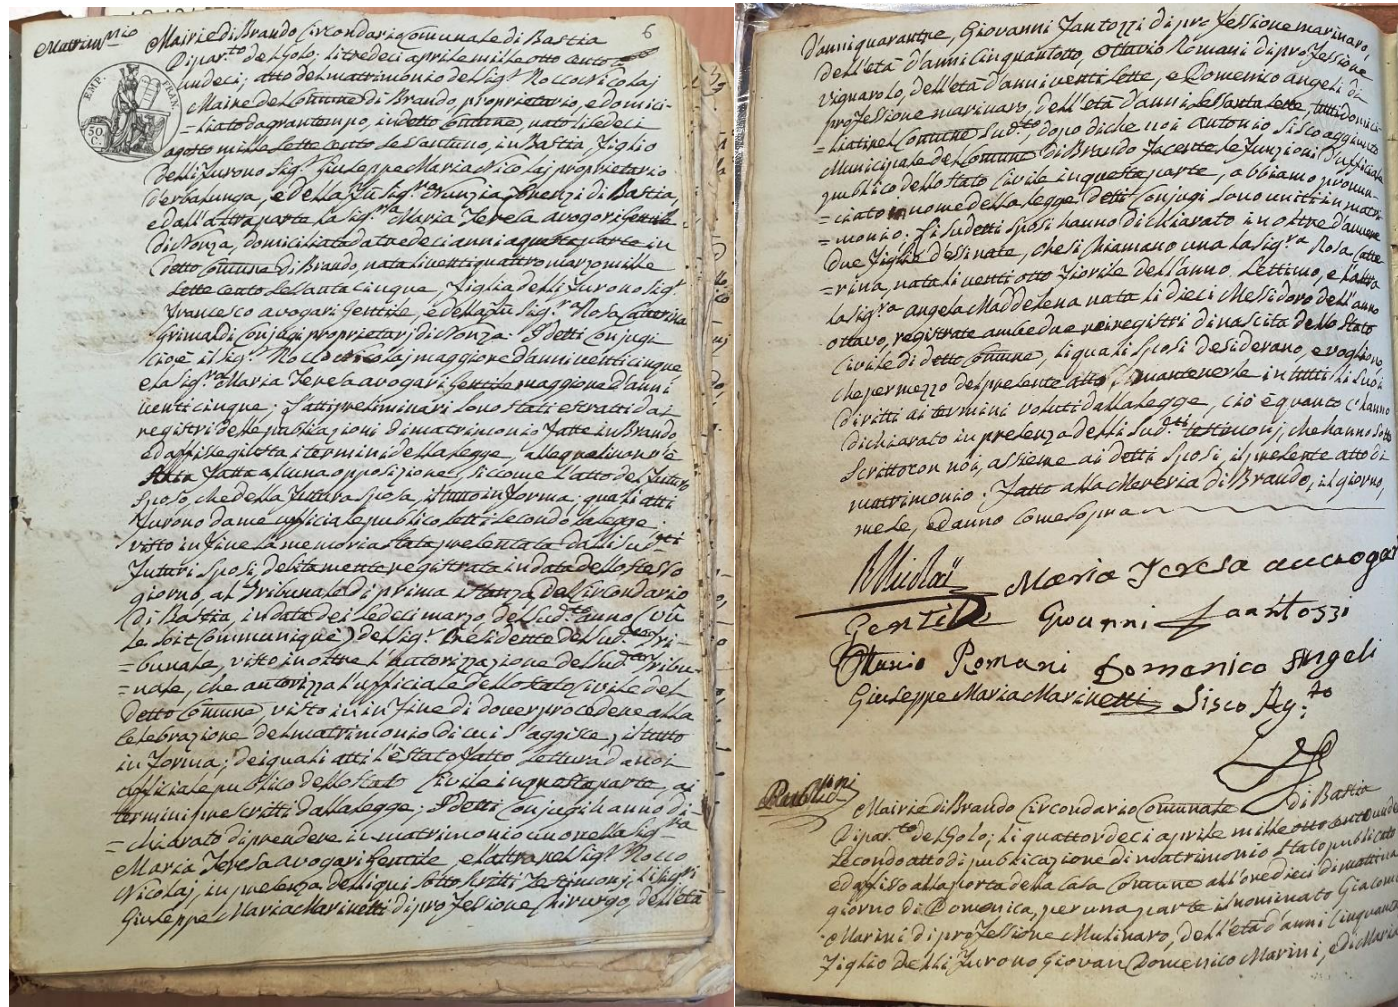 Matrimonio
6
Mairie di Brando Circondario Comunale di Bastia
Dipar.to del Golo; li tredeci aprile mille otto cento
undeci; atto del matrimonio del Sig.r Rocco Nicolaj
Maire del Comune di Brando, proprietario, e domici-
=liato da gran tempo, in detto Comune, nato li sedeci
agosto mille sette cento sessantuno, in Bastia, figlio
delli furono Sig.r Giuseppe Maria Nicolaj proprietario
d'erbalunga, e della fù Sig.ra Nunzia Frenzi di Bastia,
e dall'altra parte la Sig.ra Maria Teresa avogari Gentile
di Nonza, domiciliata da tredeci anni a questa parte in
detto Comune di Brando, nata li venti quattro marzo mille
sette cento sessanta cinque, figlia delli furono Sig.r
Francesco avogari Gentile, e della fù Sig.ra Rosa Catterina
Grimaldi Conjugi proprietarj di Nonza: I detti Conjugi
cioè il Sig.r Rocco Nicolaj maggiore d'anni venti cinque
e la Sig.ra Maria Teresa avogari Gentile maggiore d'anni
venti cinque; l'atti preliminari sono stati estratti dai
registri delle publiazioni di matrimonio fatte in Brando
ed affisse giusta i termini della legge, alle quali non v'è
stata fatta alcuna opposizione, siccome l'atto del futuro
sposo, che della futura sposa, il tutto in forma; quali atti
furono da me ufficiale publico letti secondo la legge.
visto in fine la memoria stata presentata dalli sud.tti
futuri sposi debitamente registrata in data dello stesso
giorno, al Tribunale di prima istanza del Circondario
di Bastia, in data dei sedeci marzo del sud.to anno (vù
le soit Communiqué) del Sig.r Presidente del sud.to Tri-
=bunale, visto in oltre l'autorizzazione del sud.to Tribu-
=nale, che autorizza l'ufficiale dello stato Civile del
detto Comune, visto in in fine di dover procedere alla
celebrazione del matrimonio di cui s'aggisce, il tutto
in forma; dei quali atti l'è stato fatto lettura da noi
officiale publico dello stato Civile in questa parte, ai
termini prescritti dalla legge: I detti Conjugi hanno di-
=chiarato di prendere in matrimonio uno nella Sig.ra
Maria Teresa avogari Gentile, e l'altra nel Sig.r Rocco
Nicolaj, in presenza delli qui sotto scritti testimonj, li Sig.ri
Giuseppe Maria Marinetti di professione Chirurgo, dell'età
d'anni quarantre, Giovanni Fantozzi di professione marinaro,
dell'età d'anni cinquantotto, Ottavio Romani di professione
vignarolo, dell'età d'anni venti sette, e Domenico angeli di
professione marinaro, dell'età d'anni sessanta sette, tutti domici-
=liati nel Comune sud.to; dopo di che noi Antonio Sisco aggiunto
Municipale del Comune di Brando facente le funzioni d'ufficiale
publico dello stato Civile in questa parte, abbiamo pronun-
=ciato in nome della legge detti Conjugi sono uniti in matri-
=monio: li sudetti sposi hanno dichiarato in oltre d'avere
due figlie d'essi nate, che si chiamano una la Sig.ra Rosa Catte
=rina, nata li venti otto fiorile dell'anno settimo, e l'altra
la Sig.ra angela Maddelena nata li dieci Messidoro dell'anno
ottavo, registrate ambedue nei registri di nascita dello stato
Civile di detto Comune, li quali sposi desiderano, e vogliono,
che per mezzo del presente atto, mantenerle in tutti li suoi
diritti ai termini voluti dalla legge, ciò è quanto c'hanno
dichiarato in presenza delli sud.tti testimonj, che hanno sotto
scritto con noi, assieme ai detti sposi il presente atto di
matrimonio: fatto alla Mereria di Brando, il giorno,
mese, ed anno come sopra
RNicolaÿ Maria Teresa auuogari
Gentile Giouanni faantozzi
Ottauio Romani Domenico Angeli
Giuseppe Maria Marinetti Sisco Ag.to
Publi.ni
Mairie di Brando Circondario Comunale di Bastia
Dipar.to del Golo; li quattordeci aprile mille otto cento undeci
secondo atto di publicazione di matrimonio stato publicato
ed affisso alla porta della casa Comune all'ore dieci di mattina
giorno di Domenica, per una parte il nominato Giacomo
Marini di professione Mulinaro, dell'età d'anni cinquanta
figlio delli furono Giovan Domenico Marini, e di Maria
EMP. FRAN.
50 C.